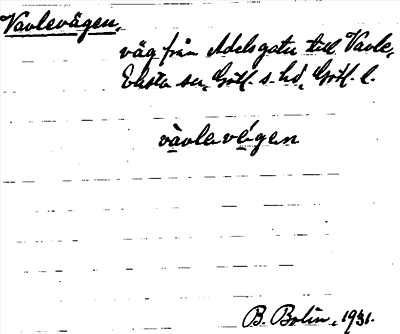 Vavlevägen,
väg från Adelsgatu till Vavle,
Eksta sn, Gotl. s. hd, Gotl. l.
vàvlevégen
B. Bolin, 1931.